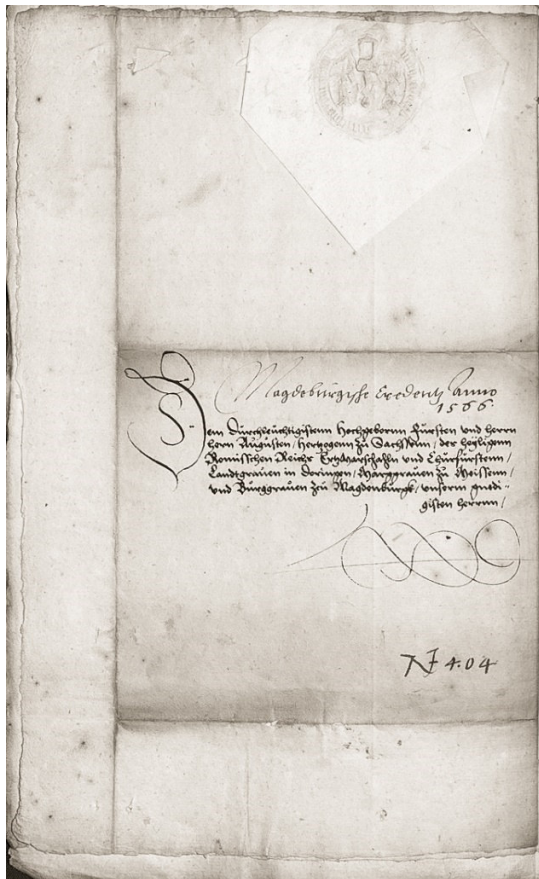 Magdeburgische Credentz Anno
1566.
Dem Durchleuchtigistenn Hochgebornn Fursten vnd herrn
hern Augusten / hertzogenn zu Sachssenn / der heyligenn
Romisschen Reichs Ertzmarschaln vnd Churfurstenn /
Landtgrauen in Doringen / Marggrauen zu Meissenn /
vnd Burggrauen zu Magdenburgk / vnserm gnedi=
gisten herrnn /
N 4.04